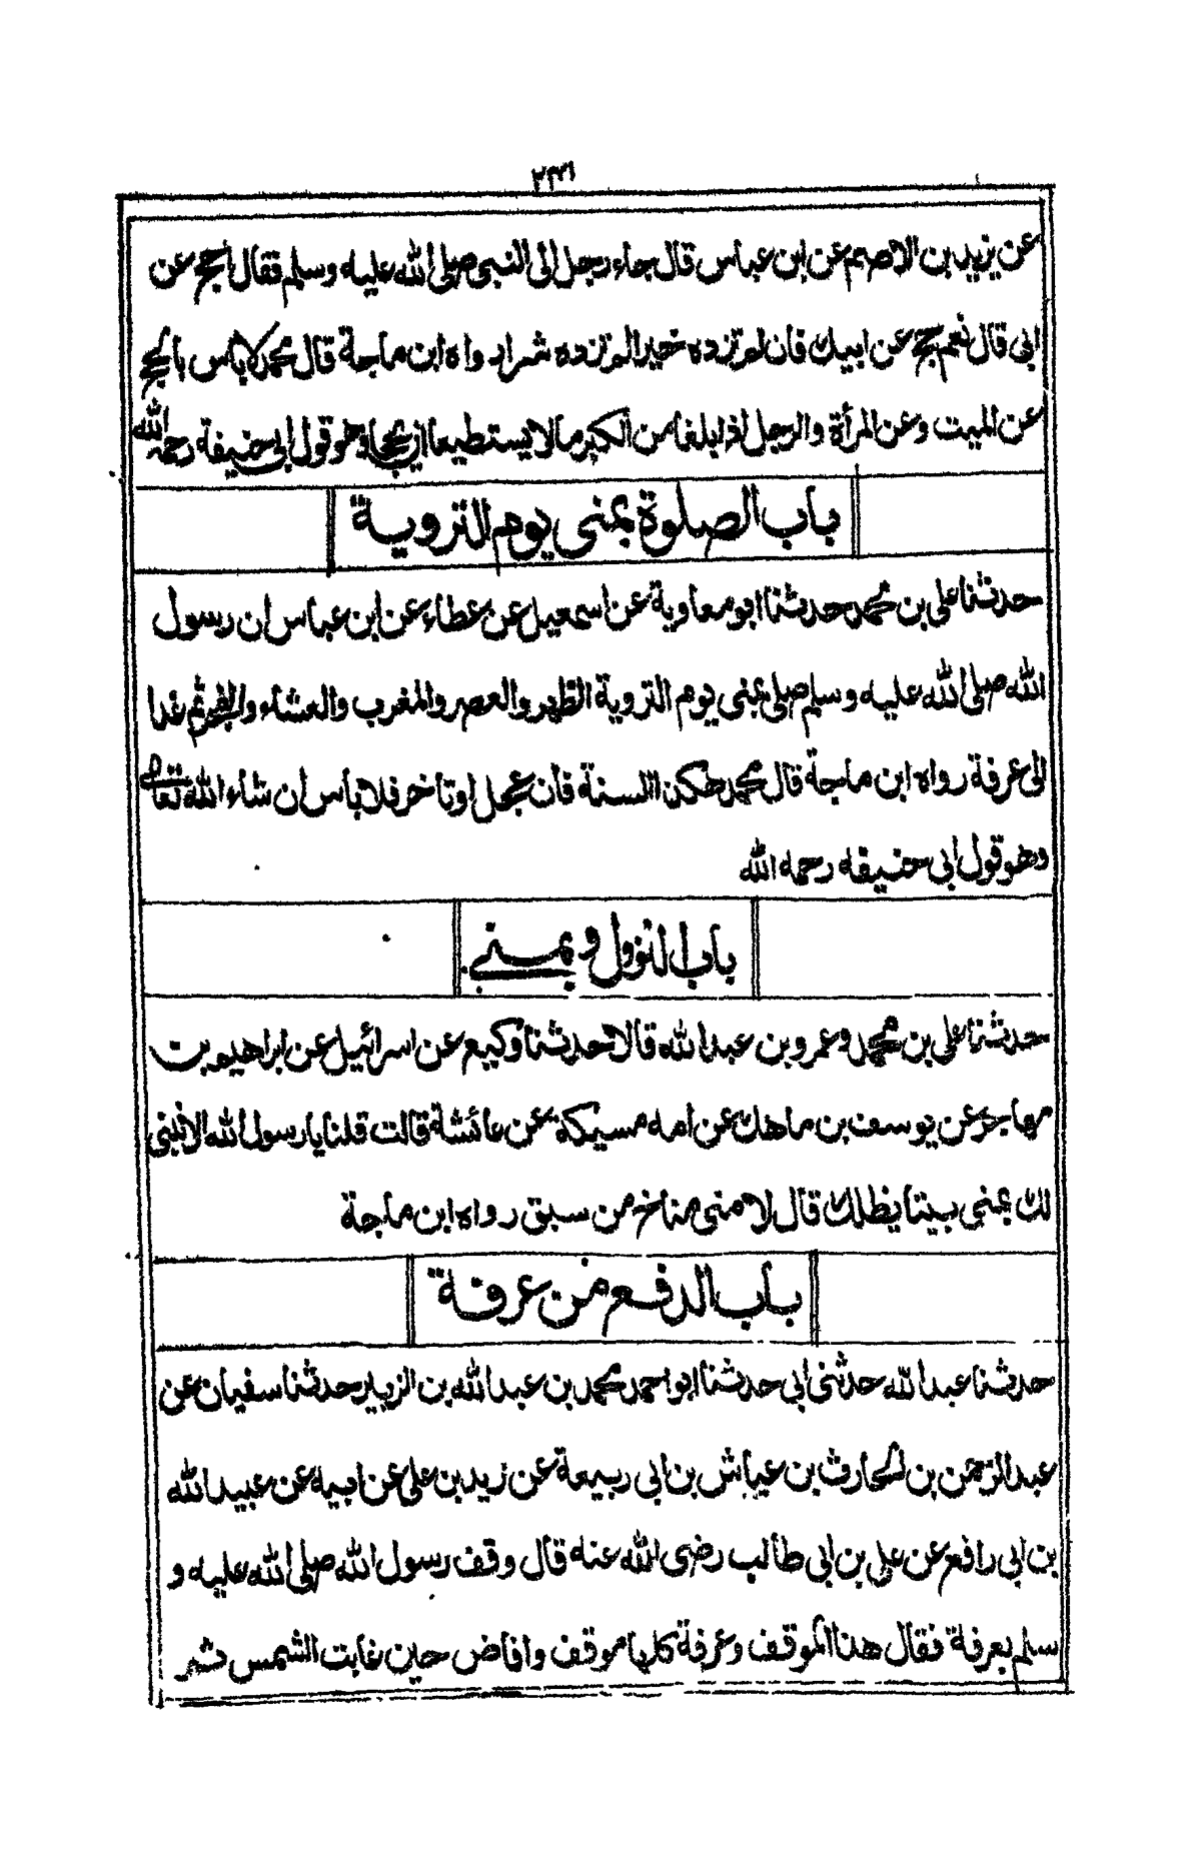 ٢٣١
عن يزيد بن الاصم عن ابن عباس قال جاء رجل الى النبي صلى الله عليه وسلم فقال احج عن
ابى قال نعم حج عن ابيك فان لم تزده خيرا لم تزده شرا رواه ابن ماجة قال محمد لا باس بالحج
عن الميت وعن المرأة والرجل اذا بلغا من الكبر ما لا يستطيعا ان يحجا وهو قول ابى حنيفة رحمه الله
باب الصلوة بمنى يوم التروية
حدثنا على بن محمد حدثنا ابو معاوية عن اسمعيل عن عطاء عن ابن عباس ان رسول
الله صلى الله عليه وسلم صلى بمنى يوم التروية الظهر والعصر والمغرب والعشاء والفجر ثم غدا
الى عرفة رواه ابن ماجة قال محمد هكذا السنة فان عجل او تأخر فلا بأس ان شاء الله تعالى
وهو قول ابى حنيفه رحمه الله
باب النزول و بمنى
حدثنا على بن محمد وعمرو بن عبد الله قالا حدثنا وكيع عن اسرائيل عن ابراهيم بن
مهاجر عن يوسف بن ماهك عن امه مسيكة عن عائشة قالت قلنا يا رسول الله الا نبنى
لك بمنى بيتا يظلك قال لا منى مناخ من سبق رواه ابن ماجة
باب الدفع من عرفة
حدثنا عبد الله حدثنى ابى حدثنا ابو احمد محمد بن عبد الله بن الزبير حدثنا سفيان عن
عبد الرحمن بن الحارث بن عياش بن ابى ربيعة عن زيد بن على عن ابيه عن عبيد الله
بن ابى رافع عن على بن ابى طالب رضى الله عنه قال وقف رسول الله صلى الله عليه و
سلم بعرفة فقال هذا الموقف وعرفة كلها موقف وافاض حين غابت الشمس ثم